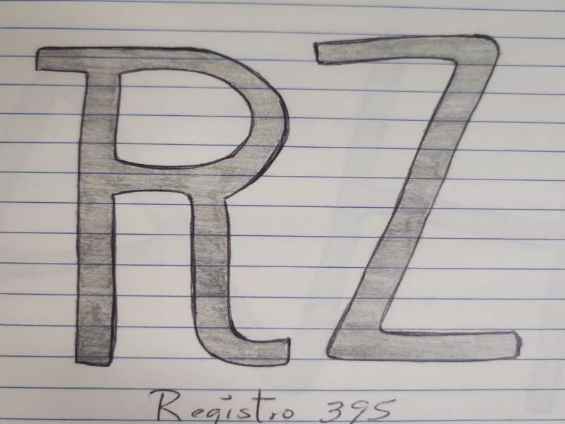 RZ
Registro 395